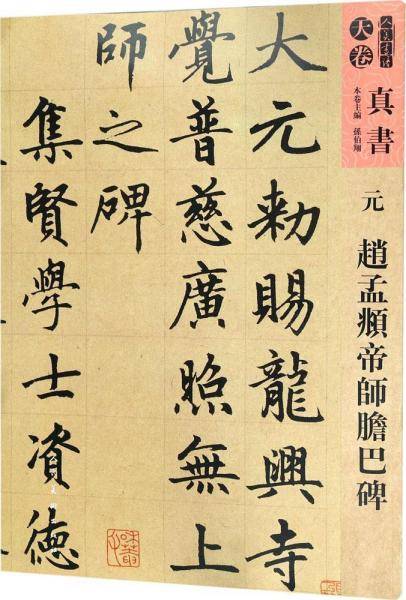 人美書譜
天卷
真書
本卷主編 孫伯翔
元 趙孟頫帝師膽巴碑
大元勑賜龍興寺
覺普慈廣照無上
師之碑
集賢學士資德